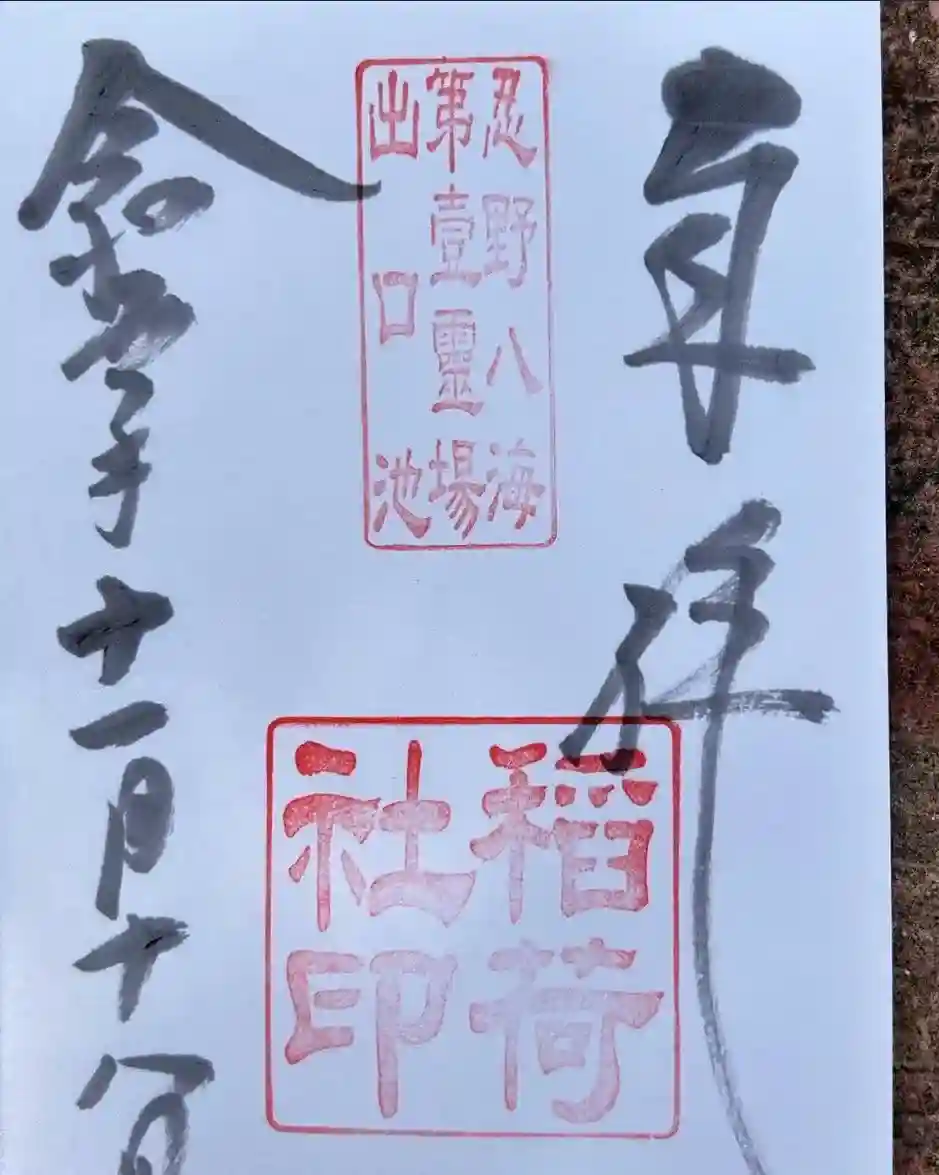 奉拝
忍野八海
第壹靈場
出口池
稻荷
社印
令和年十一月十八日